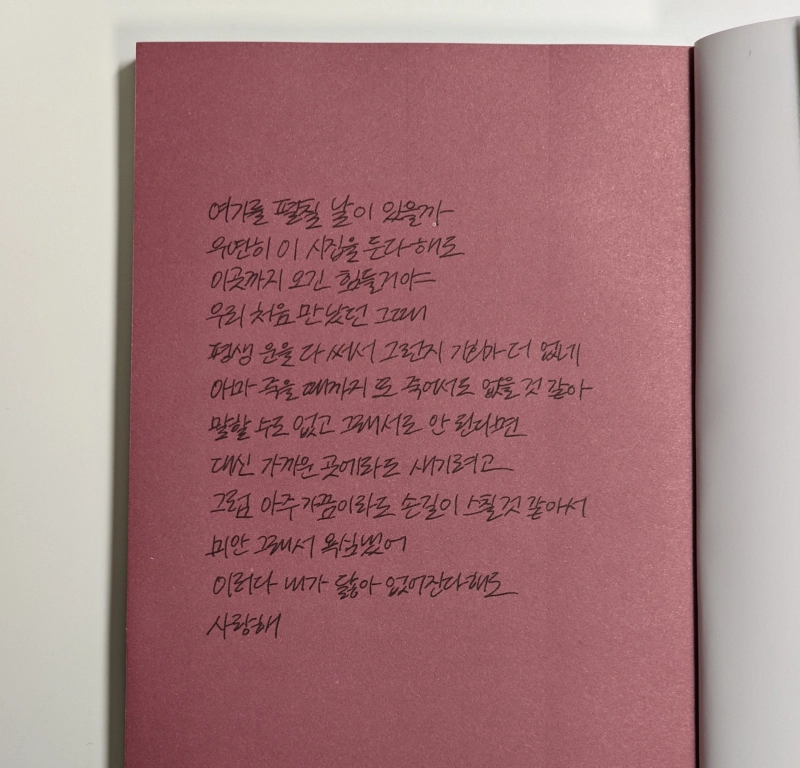 여기를 펼칠 날이 있을까
우연히 이 시집을 든다 해도
이곳까지 오긴 힘들거야
우리 처음 만났던 그때
평생 운을 다 써서 그런지 기회가 더 없네
아마 죽을 때까지 또 죽어서도 없을 것 같아
말할 수도 없고 그래서도 안 된다면
대신 가까운 곳에라도 새기려고
그럼 아주 가끔이라도 손길이 스칠 것 같아서
미안 그래서 욕심냈어
이러다 내가 닳아 없어진다 해도
사랑해